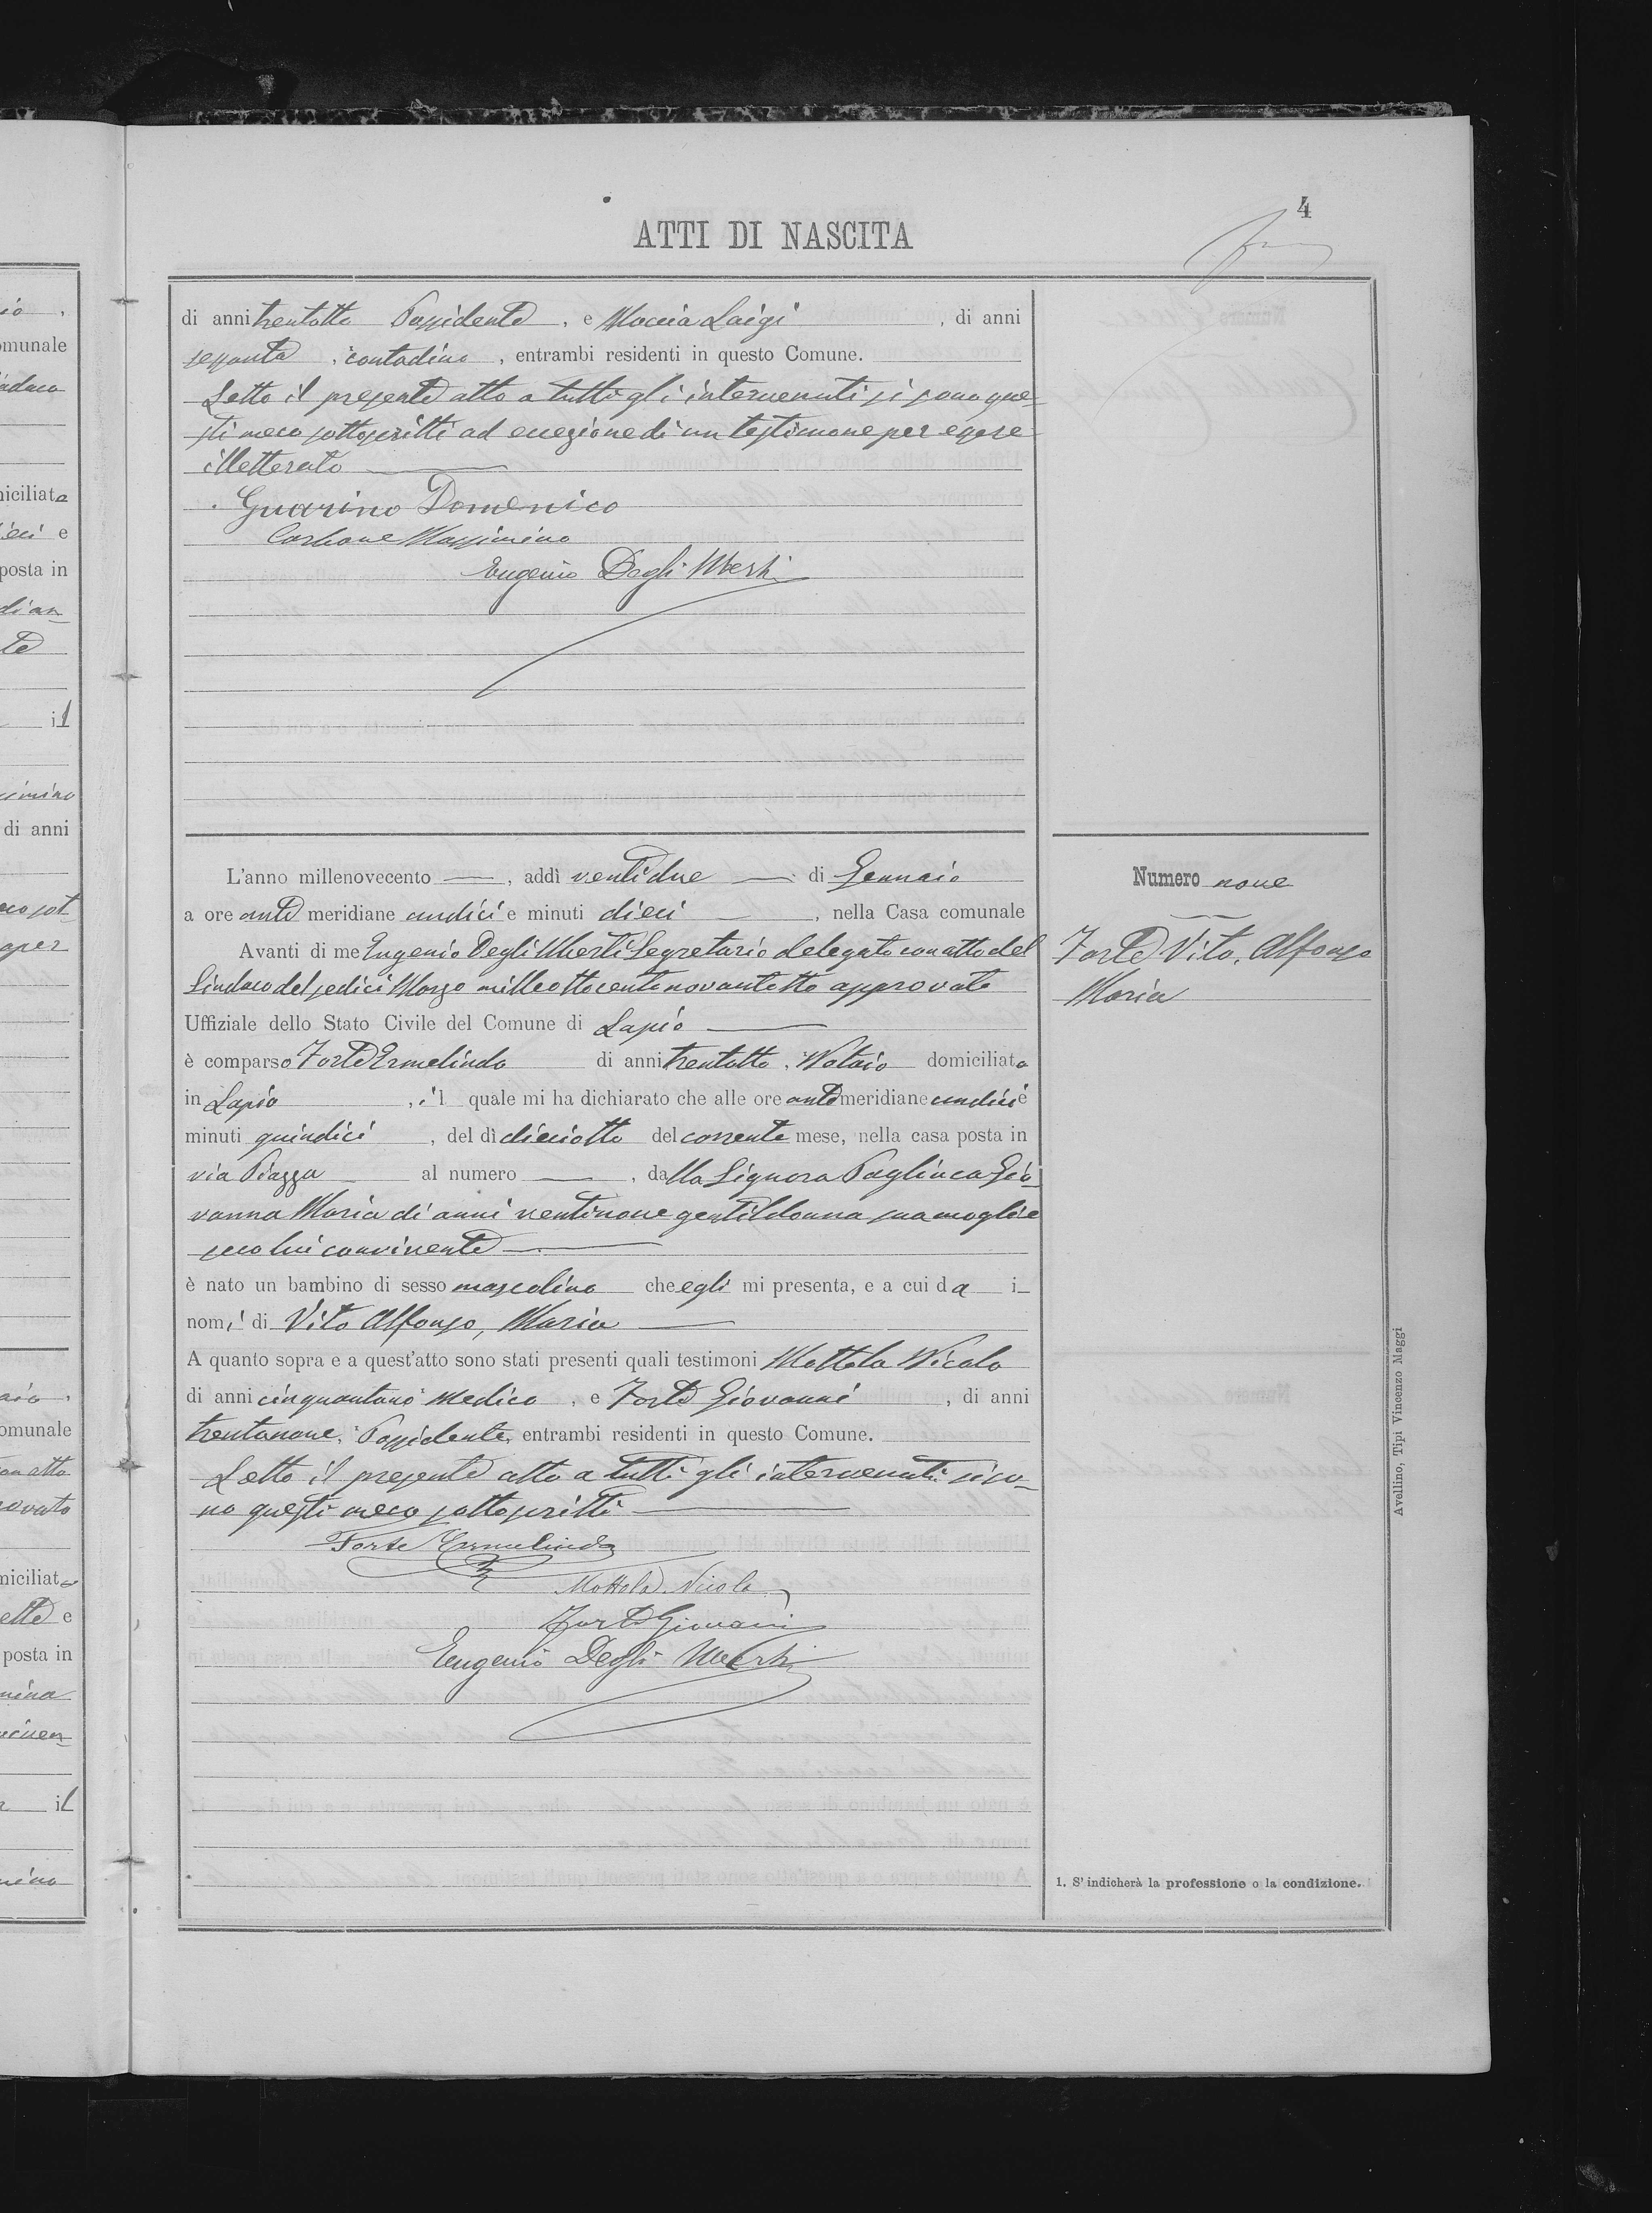 4
ATTI DI NASCITA
di anni trentotto Possidente, e Moccia Luigi, di anni
sessanta, contadino, entrambi residenti in questo Comune.
Letto il presente atto a tutti gli intervenuti si sono que-
sti meco sottoscritti ad eccezione di un testimone per essere
illetterato
Guarino Domenico
Carbone Massimino
Eugenio Degli Uberti
L'anno millenovecento —, addì ventidue — di Gennaio
a ore ante meridiane undici e minuti dieci —, nella Casa comunale
Avanti di me Eugenio Degli Uberti Segretario delegato con atto del
Sindaco del sedici Marzo milleottocentonovantotto approvato
Uffiziale dello Stato Civile del Comune di Lapio
è comparso Forte Ermelindo di anni trentotto, Notaio domiciliato
in Lapio, il quale mi ha dichiarato che alle ore ante meridiane undici e
minuti quindici, del dì dieciotto del corrente mese, nella casa posta in
via Piazza al numero —, dalla Signora Pagliuca Gio-
vanna Maria di anni ventinove gentildonna sua moglie
seco lui convivente
è nato un bambino di sesso mascolino che egli mi presenta, e a cui da i
nomi di Vito Alfonso, Maria
A quanto sopra e a quest'atto sono stati presenti quali testimoni Mottola Nicola
di anni cinquantuno Medico, e Forte Giovanni, di anni
trentanove, Possidente, entrambi residenti in questo Comune.
Letto il presente atto a tutti gli intervenuti si so-
no questi meco sottoscritti
Forte Ermelindo
Mottola Nicola
Forte Giovanni
Eugenio Degli Uberti
Numero nove
Forte Vito, Alfonso
Maria
1. S'indicherà la professione o la condizione.
Avellino, Tipi Vincenzo Maggi